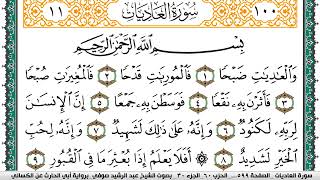 ١١ سُورَةُ الْعَادِيَاتِ ١٠٠
بِسْمِ اللَّهِ الرَّحْمَٰنِ الرَّحِيمِ
وَالْعَٰدِيَٰتِ ضَبْحًا ١ فَالْمُورِيَٰتِ قَدْحًا ٢ فَالْمُغِيرَٰتِ صُبْحًا
٣ فَأَثَرْنَ بِهِۦ نَقْعًا ٤ فَوَسَطْنَ بِهِۦ جَمْعًا ٥ إِنَّ الْإِنسَٰنَ
لِرَبِّهِۦ لَكَنُودٌ ٦ وَإِنَّهُۥ عَلَىٰ ذَٰلِكَ لَشَهِيدٌ ٧ وَإِنَّهُۥ لِحُبِّ
الْخَيْرِ لَشَدِيدٌ ٨ أَفَلَا يَعْلَمُ إِذَا بُعْثِرَ مَا فِي الْقُبُورِ ٩
سورة العاديات - الصفحة ٥٩٩ - الحزب ٦٠ - الجزء ٣٠ - بصوت الشيخ عبد الرشيد صوفي - برواية أبي الحارث عن الكسائي